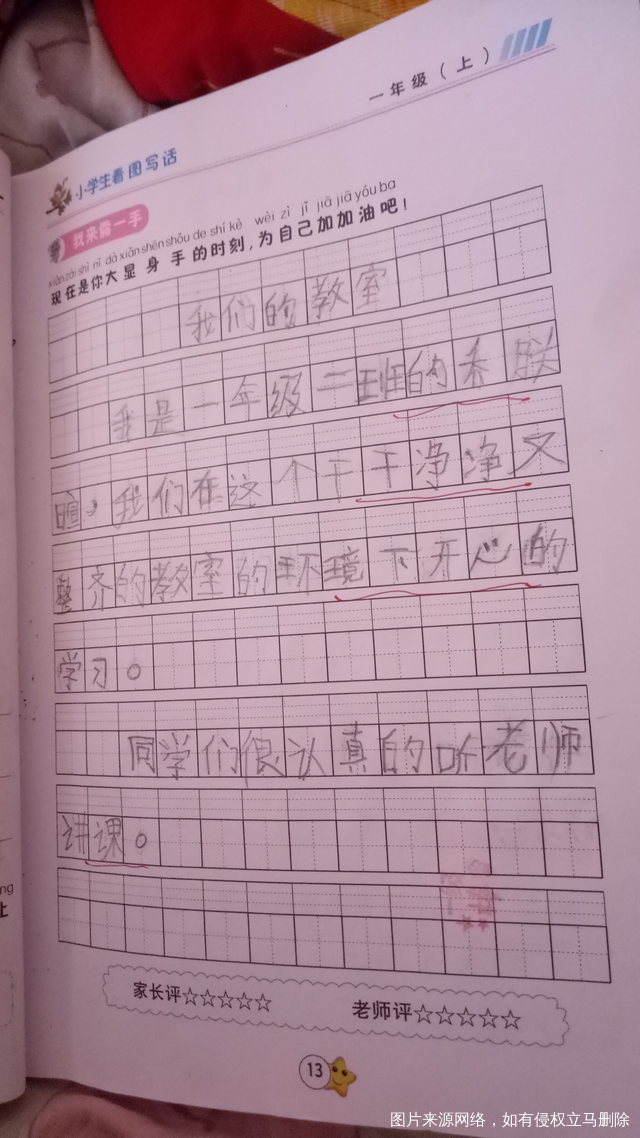 一年级（上）
小学生看图写话
我来露一手
xiàn zài shì nǐ dà xiǎn shēn shǒu de shí kè wèi zì jǐ jiā jiā yóu ba
现在是你大显身手的时刻，为自己加加油吧！
我们的教室
我是一年级二班的
我们在这个干干净净又
整齐的教室的环境下开心的
学习。
同学们很认真的听老师
讲课。
家长评☆☆☆☆☆ 老师评☆☆☆☆☆
13
ng
上
图片来源网络，如有侵权立马删除